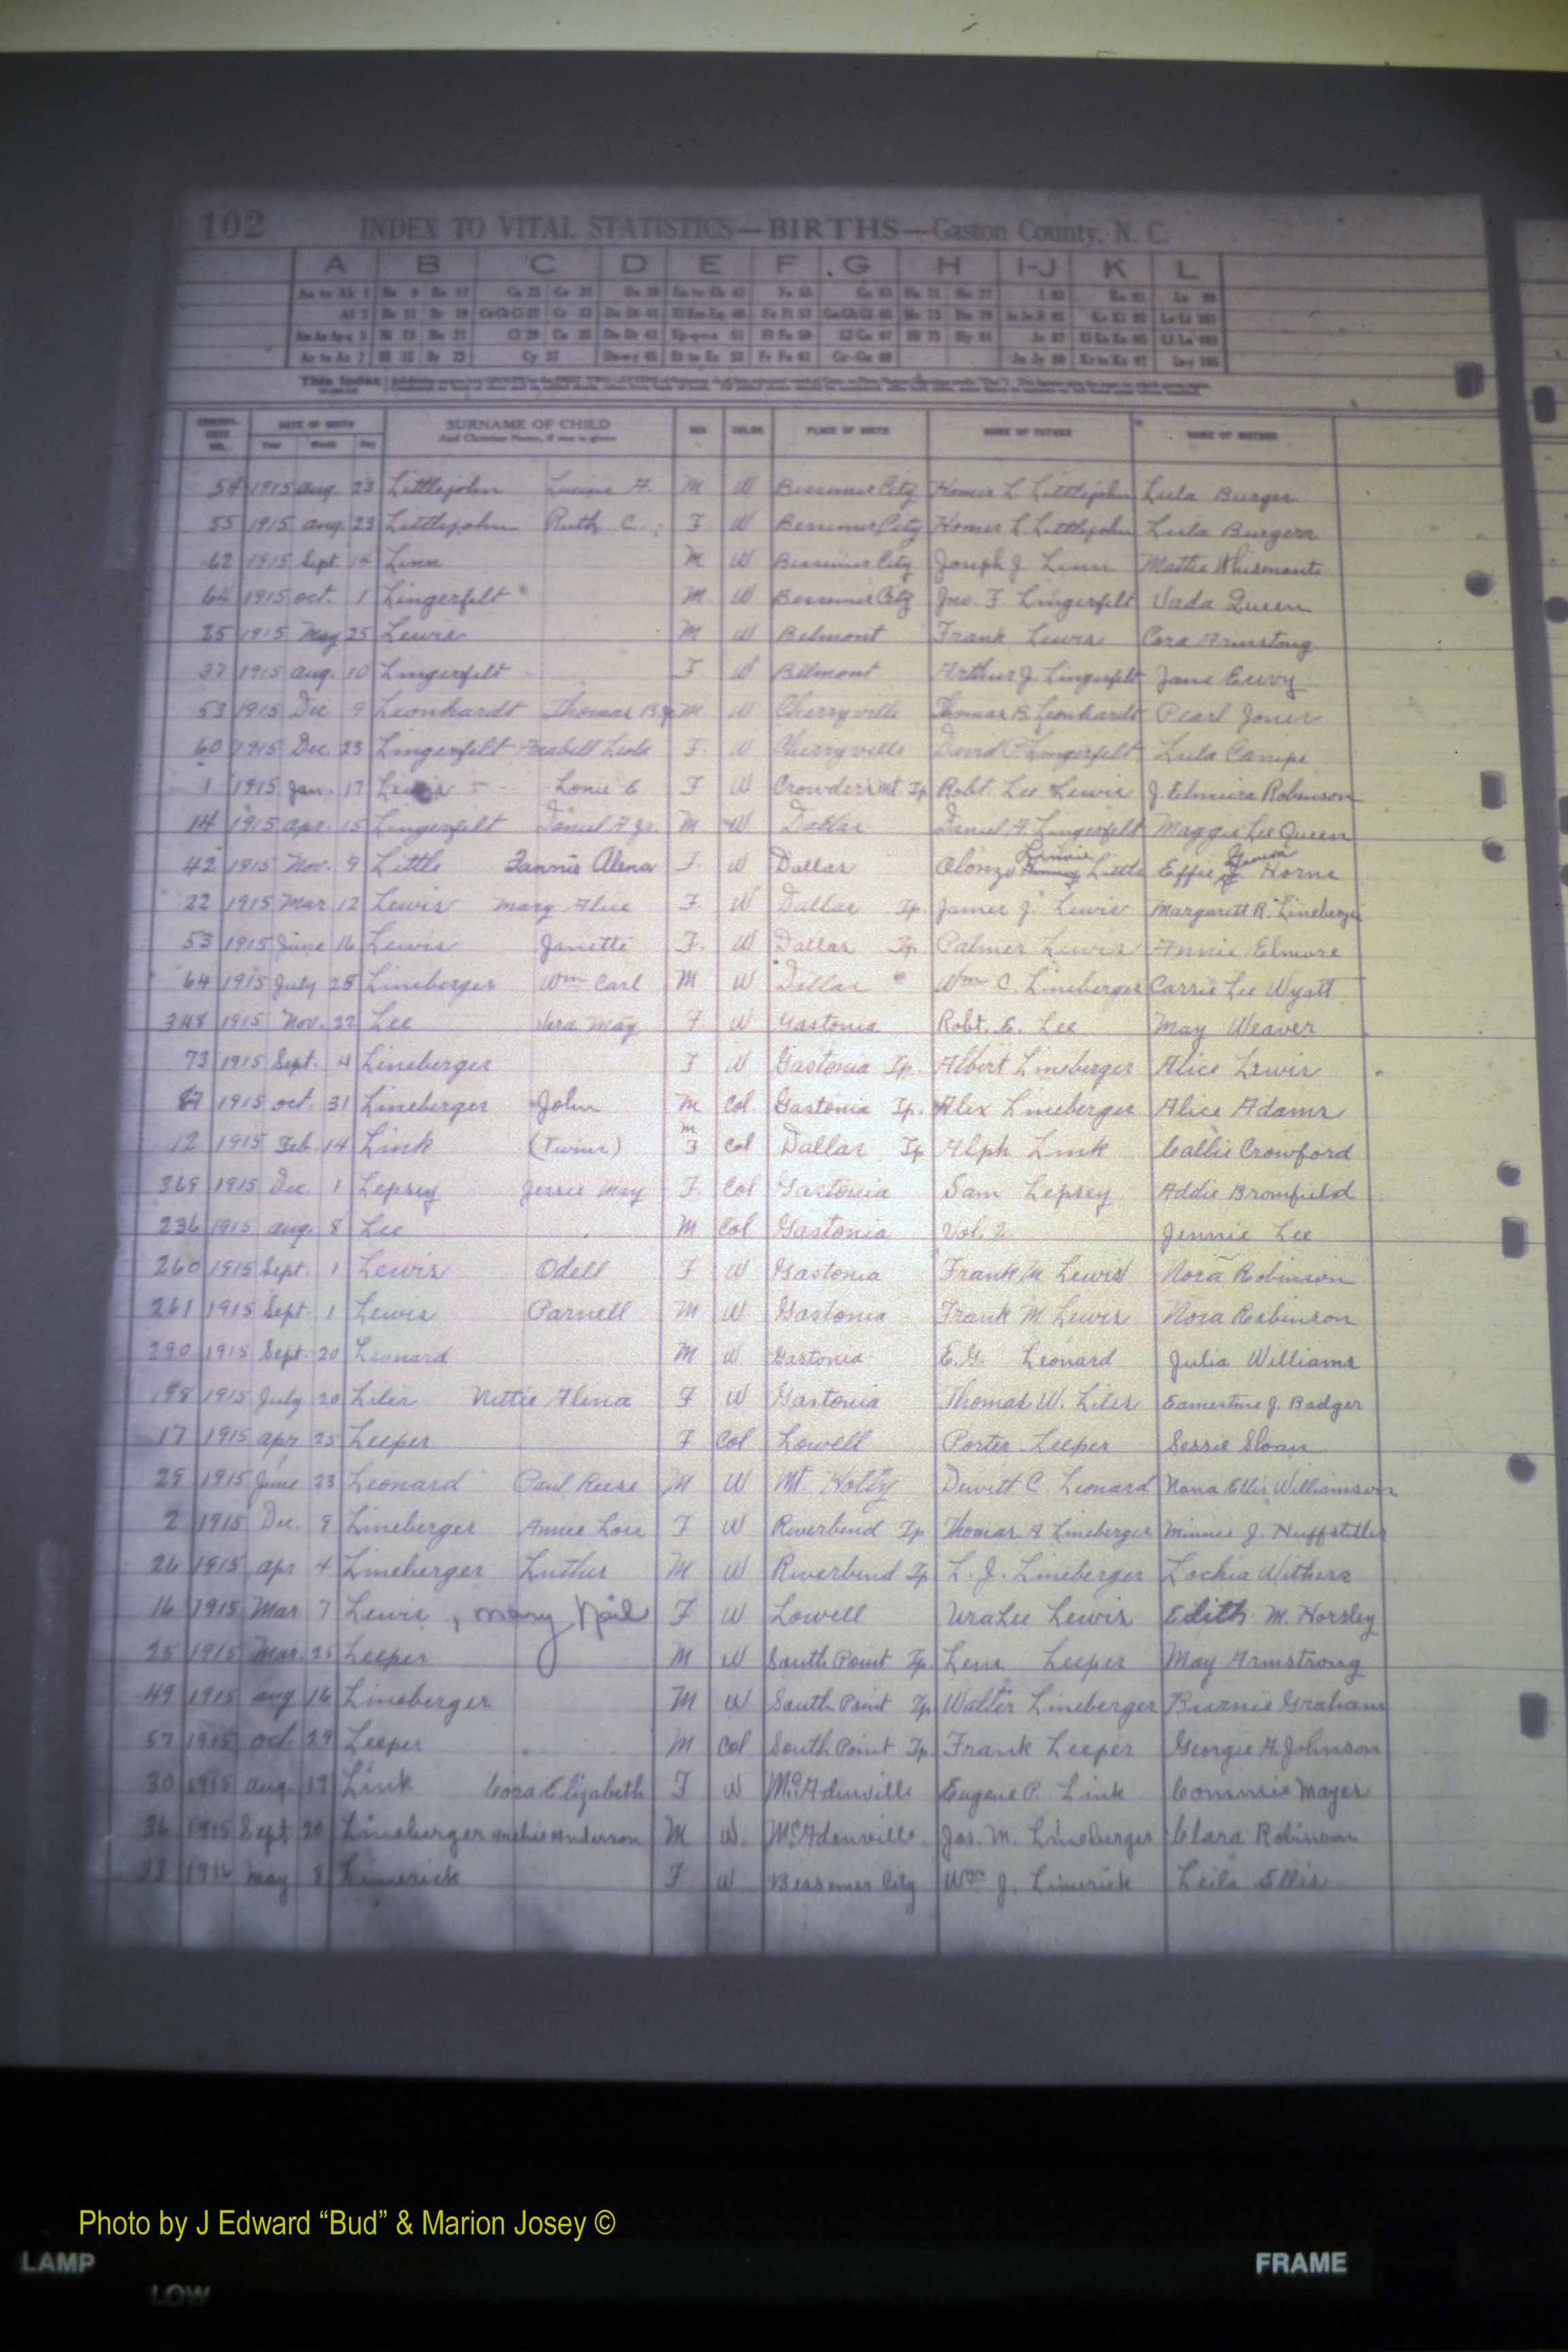 102 INDEX TO VITAL STATISTICS—BIRTHS—Gaston County, N. C.
A B C D E F G H I-J K L
This Index
DATE OF BIRTH SURNAME OF CHILD SEX COLOR PLACE OF BIRTH NAME OF FATHER NAME OF MOTHER
Year Month Day And Christian Name, if one is given
54 1915 Aug. 23 Littlejohn M W Bessemer City Homer L Littlejohn Lula Burger
55 1915 Aug. 23 Littlejohn Ruth C. F W Bessemer City Homer L Littlejohn Lula Burgess
62 1915 Sept. 14 Linn M W Bessemer City Joseph J. Linn Mattie Whisenant
64 1915 Oct. 1 Lingerfelt M W Bessemer City Jno. F Lingerfelt Vada Queen
25 1915 May 25 Lewis M W Belmont Frank Lewis Cora Armstong
37 1915 Aug. 10 Lingerfelt F W Belmont Arthur J. Lingerfelt Jane
53 1915 Dec 9 Leonhardt Thomas B Jr M W Cherryville Thomas B Leonhardt Pearl Jones
60 1915 Dec. 23 Lingerfelt F. W Cherryville David P. Lingerfelt Lula Canipe
1 1915 Jan. 17 Lewis Lonie E F W Crowders Mt Tp Robt Lee Lewis J. Elmira Robinson
14 1915 Apr. 15 Lingerfelt Daniel F Jr. M W Dallas Daniel F. Lingerfelt Maggie Lee Queen
42 1915 Nov. 9 Little Fannie Alena F. W Dallas Alonzo Little Effie Horne
22 1915 Mar 12 Lewis Mary Alice F. W Dallas Tp. James J. Lewis Margarett R. Lineberger
53 1915 June 16 Lewis Janette F. W Dallas Tp. Palmer Lewis Annie Elmore
64 1915 July 28 Lineberger Wm Carl M W Dallas " Wm C. Lineberger Carrie Lee Wyatt
348 1915 Nov. 22 Lee Vera May F W Gastonia Robt. E. Lee May Weaver
73 1915 Sept. 4 Lineberger F W Gastonia Tp. Albert Lineberger Alice Lewis
87 1915 Oct. 31 Lineberger John M Col. Gastonia Tp. Alex Lineberger Alice Adams
12 1915 Feb. 14 Link (Twins) M F Col Dallas Tp Alph Link Callie Crowford
369 1915 Dec. 1 Lepsey Jessie May F. Col Gastonia Sam Lepsey Addie Bromfield
236 1915 Aug. 8 Lee M Col Gastonia Vol. 2 Jennie Lee
260 1915 Sept. 1 Lewis Odell F W Gastonia Frank M Lewis Nora Robinson
261 1915 Sept. 1 Lewis Parnell M W Gastonia Frank M Lewis Nora Robinson
290 1915 Sept. 20 Leonard M W Gastonia E.G. Leonard Julia Williams
198 1915 July 20 Liles Nettie Alma F W Gastonia Thomas W. Liles Earnestine J. Badger
17 1915 Apr 25 Leeper F Col Lowell Porter Leeper Sessie Sloan
29 1915 June 23 Leonard Paul Reese M W Mt. Holly Dewitt C. Leonard Nana Ellis Williamson
2 1915 Dec. 9 Lineberger Annie Lou F W Riverbend Tp Thomas A Lineberger Minnie J. Huffstetler
26 1915 Apr 4 Lineberger Luther M W Riverbend Tp L. J. Lineberger Lochia Withers
16 1915 Mar 7 Lewis, Mary F W Lowell Ura Lee Lewis Edith M. Horsley
25 1915 Mar. 25 Leeper M W South Point Tp Lem Leeper May Armstrong
49 1915 Aug 16 Lineberger M W South Point Tp Walter Lineberger Burnie Graham
57 1915 Oct. 29 Leeper M Col South Point Tp Frank Leeper Georgie A. Johnson
30 1915 Aug. 19 Link Cora Elizabeth F W McAdenville Eugene P. Link Commie Mayes
36 1915 Sept 20 Lineberger Archie Anderson M W. McAdenville Jas. M. Lineberger Clara Robinson
33 1916 May 8 Limerick F W Bessemer City Wm J. Limerick Leila Ellis
Photo by J Edward “Bud” & Marion Josey ©
LAMP FRAME
LOW